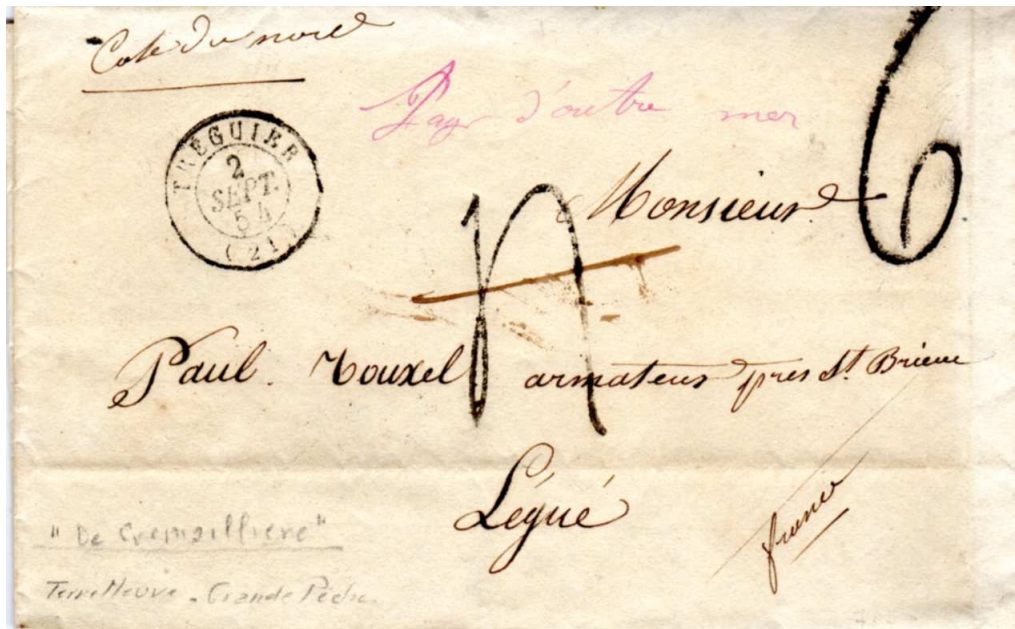 Cote du nord
Pays d'outre mer
6
TRÉGUIER
2
SEPT.
54
(21)
Monsieur
Paul Rouxel armateur près St. Brieuc
Légué
france
"De Cremaillière"
Terre Neuve - Grande Pêche.